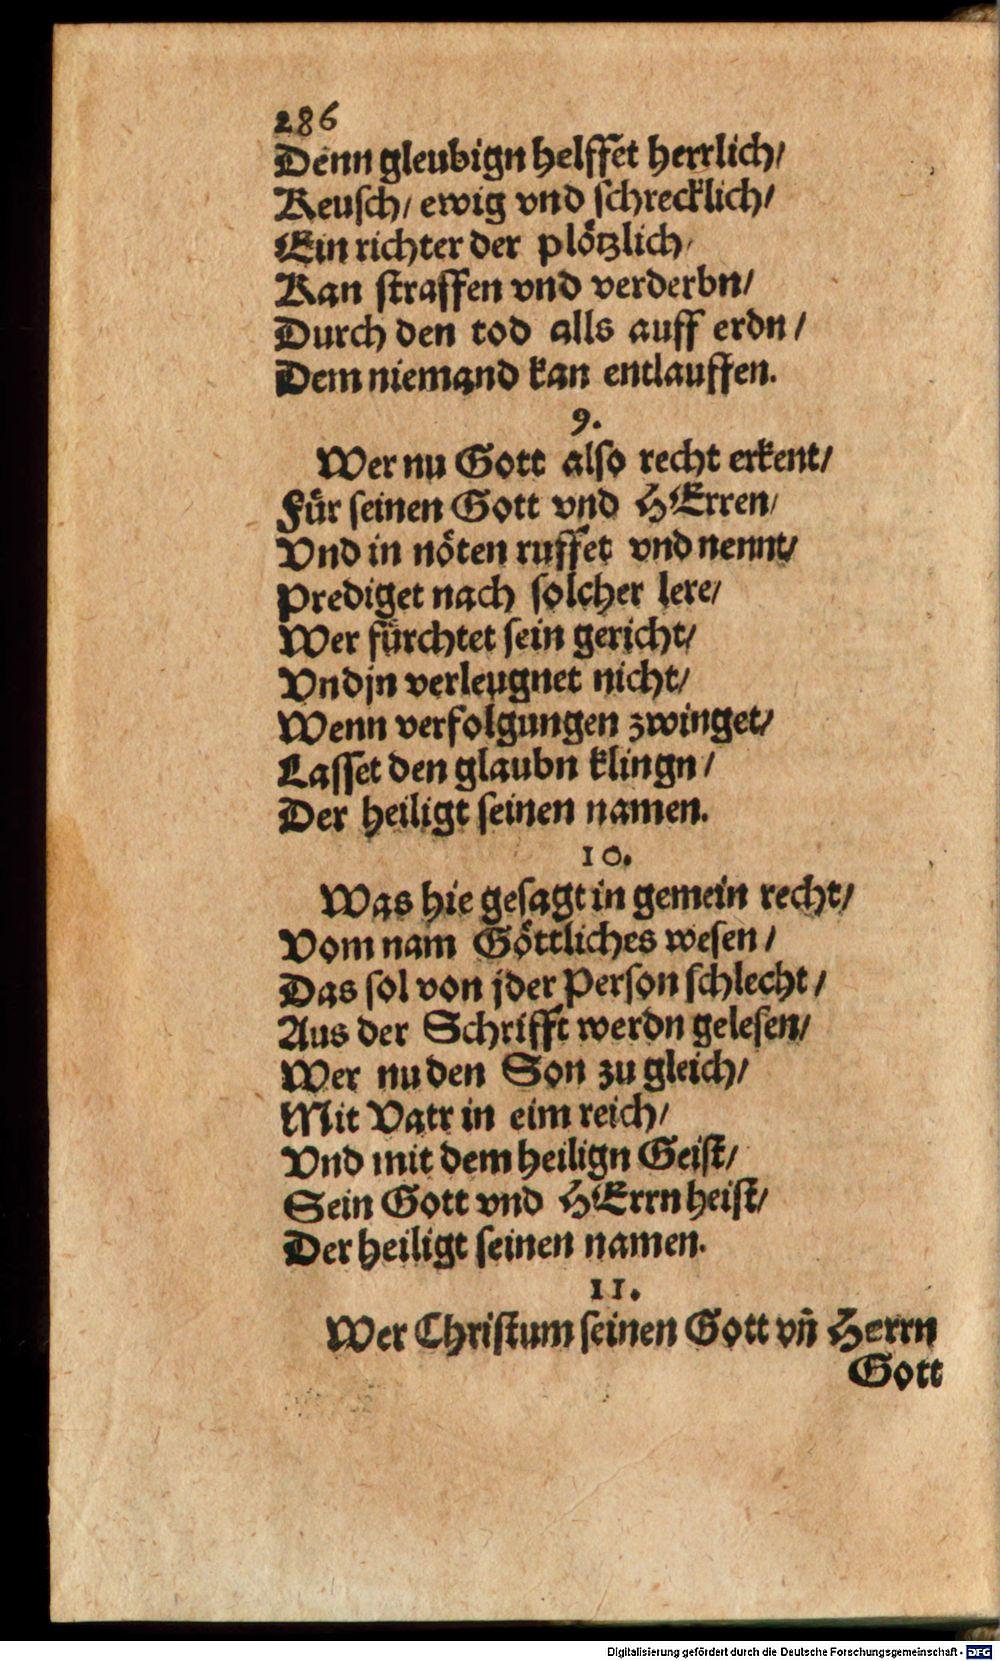 286
Denn gleubign helffet herrlich/
Keusch/ ewig vnd schrecklich/
Ein richter der plötzlich/
Kan straffen vnd verderbn/
Durch den tod alls auff erdn/
Dem niemand kan entlauffen.
9.
Wer nu Gott also recht erkent/
Für seinen Gott vnd HErren/
Vnd in nöten ruffet vnd nennt/
Prediget nach solcher lere/
Wer fürchtet sein gericht/
Vnd jn verleugnet nicht/
Wenn verfolgungen zwinget/
Lasset den glaubn klingn/
Der heiligt seinen namen.
10.
Was hie gesagt in gemein recht/
Vom nam Göttliches wesen/
Das sol von jder Person schlecht/
Aus der Schrifft werdn gelesen/
Wer nu den Son zu gleich/
Mit Vatr in eim reich/
Vnd mit dem heilign Geist/
Sein Gott vnd HErrn heist/
Der heiligt seinen namen.
11.
Wer Christum seinen Gott vñ Herrn
Gott
Digitalisierung gefördert durch die Deutsche Forschungsgemeinschaft - DFG